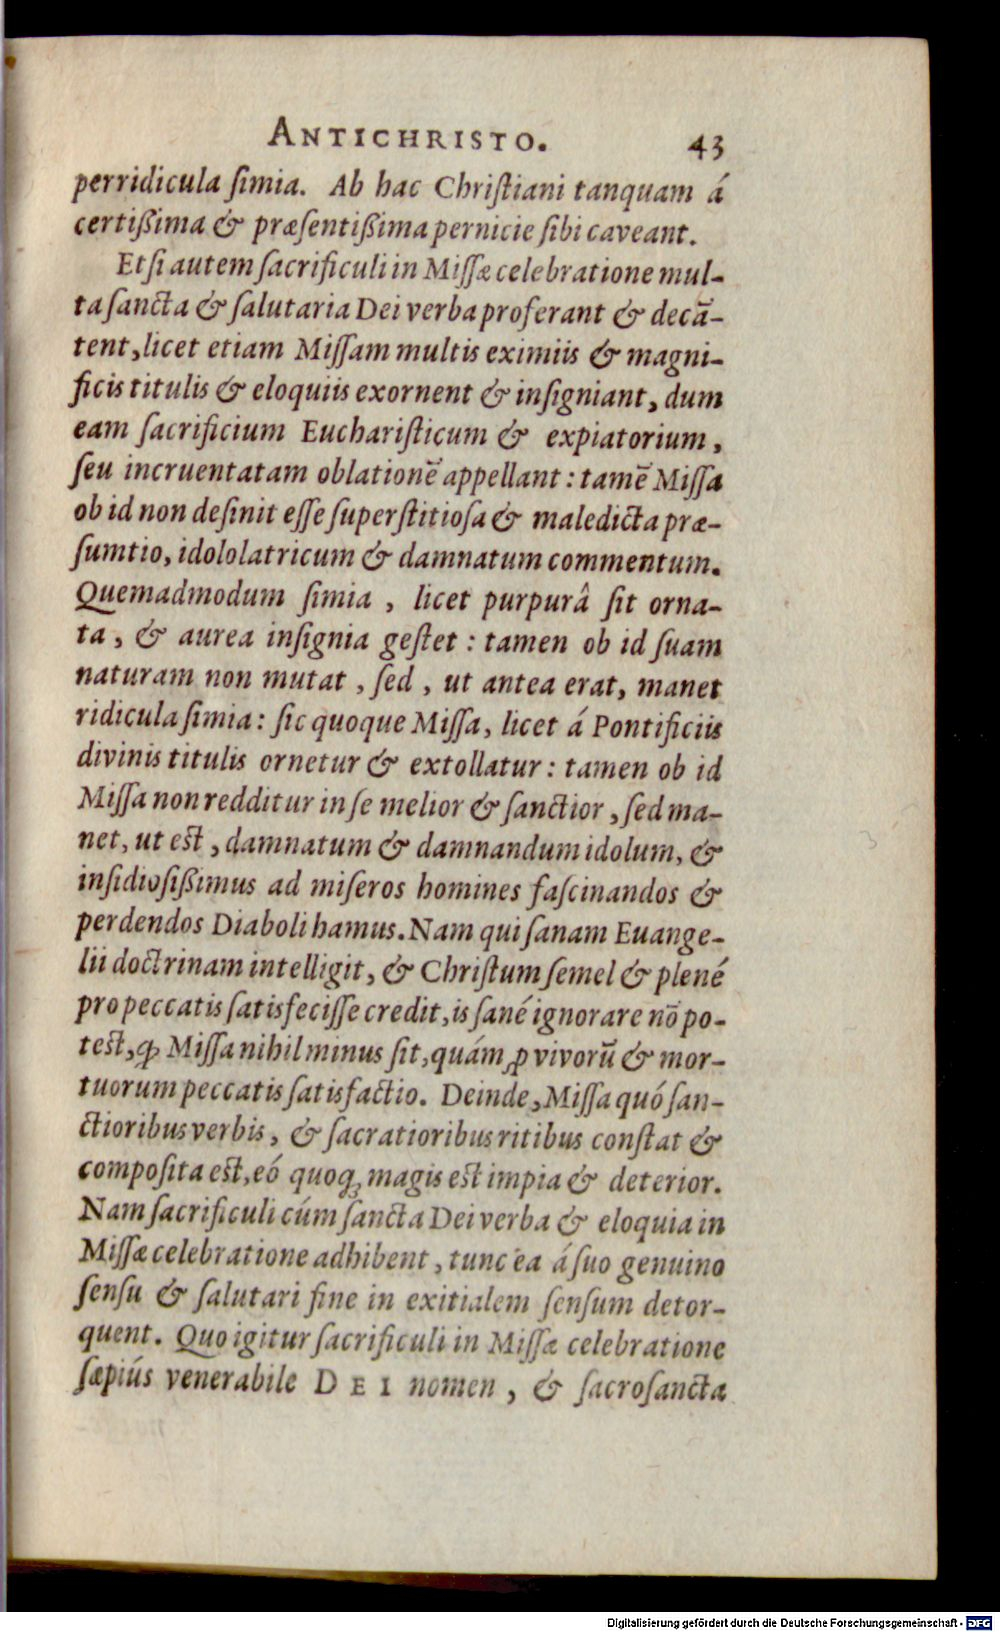 ANTICHRISTO. 43
perridicula ſimia. Ab hac Chriſtiani tanquam á
certißima & præſentißima pernicie ſibi caveant.
Etſi autem ſacrificuli in Miſſæ celebratione mul-
ta ſancta & ſalutaria Dei verba proferant & decā-
tent, licet etiam Miſſam multis eximiis & magni-
ficis titulis & eloquiis exornent & inſigniant, dum
eam ſacrificium Euchariſticum & expiatorium,
ſeu incruentatam oblationē appellant: tamē Miſſa
ob id non deſinit eſſe ſuperſtitioſa & maledicta præ-
ſumtio, idololatricum & damnatum commentum.
Quemadmodum ſimia, licet purpurâ ſit orna-
ta, & aurea inſignia geſtet: tamen ob id ſuam
naturam non mutat, ſed, ut antea erat, manet
ridicula ſimia: ſic quoque Miſſa, licet á Pontificiis
divinis titulis ornetur & extollatur: tamen ob id
Miſſa non redditur in ſe melior & ſanctior, ſed ma-
net, ut eſt, damnatum & damnandum idolum, &
inſidioſißimus ad miſeros homines faſcinandos &
perdendos Diaboli hamus. Nam qui ſanam Euange-
lii doctrinam intelligit, & Chriſtum ſemel & plené
pro peccatis ſatisfeciſſe credit, is ſané ignorare nō po-
teſt, ꝙ Miſſa nihil minus ſit, quám ꝓ vivorū & mor-
tuorum peccatis ſatisfactio. Deinde, Miſſa quó ſan-
ctioribus verbis, & ſacratioribus ritibus conſtat &
compoſita eſt, eó quoqꝫ magis eſt impia & deterior.
Nam ſacrificuli cúm ſancta Dei verba & eloquia in
Miſſæ celebratione adhibent, tunc ea á ſuo genuino
ſenſu & ſalutari fine in exitialem ſenſum detor-
quent. Quo igitur ſacrificuli in Miſſæ celebratione
ſæpiús venerabile DEI nomen, & ſacroſancta
Digitalisierung gefördert durch die Deutsche Forschungsgemeinschaft - DFG